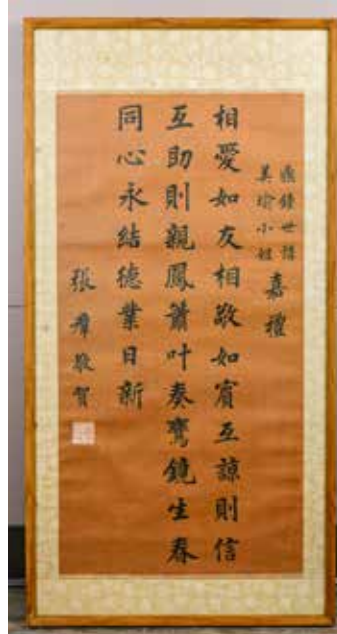 世講
小姐 嘉禮
相愛如友相敬如賓互諒則信
互助則親鳳簫叶奏鸞鏡生春
同心永結德業日新
張羣敬賀